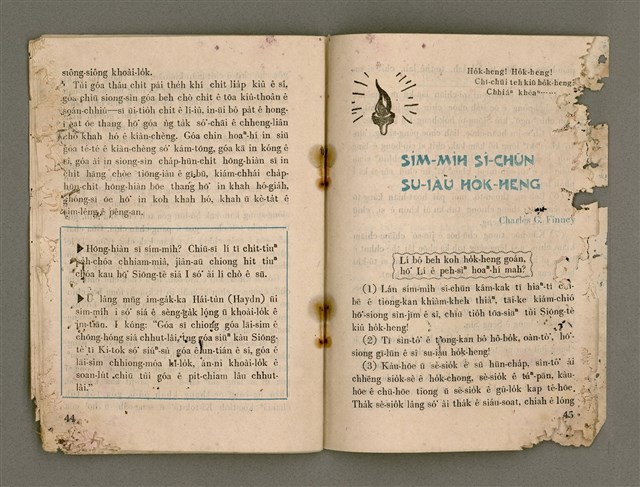 siông-siông khoài-lo̍k.
Túi góa thâu chi̍t pái the̍h khí chi̍t lia̍p kiû ê sî,
góa chiū siong-sìn góa beh chò chi̍t ê tōa kiû-thoân ê
soán-chhiú—
chò khah hó ê kiàn-chèng. Góa chin hoaⁿ-hí in siū
góa té-té ê kiàn-chèng só͘ kám-tōng, góa kā in kóng ê
sî, góa ài in siong-sin cha̍p-hūn-chi̍t hōng-hiàn sī in
chi̍t hāng chòe tiōng-iàu ê gī-bū, kiám-chhái cha̍p-
hūn-chi̍t hōng-hiàn bōe thang hō͘ in khah hó-gia̍h,
sim-lêng ê pêng-an.
▶Hōng-hiàn sī sím-mi̍h? Chiū-sī lí tī chit-tiuⁿ
chóa kau hō͘ Siōng-tè siá I só͘ ài lí chò ê sū.
▶Ū lâng mn̄g im-ga̍k-ka Hái-tùn (Haydn) ūi
sím-mi̍h i só͘ siá ê sèng-ga̍k lóng ū khoài-lo̍k ê
im-tiāu. I kóng: "Góa sī chiong góa lāi-sim ê
chōng-hóng siá chhut-lâi, ng góa siūⁿ kàu Siōng-
tè tī Ki-tok só͘ siúⁿ-sù góa ê un-tián ê sî, góa ê
lāi-sim chhiong-móa hí-lo̍k, án-ni khoài-lo̍k ê
soan-lu̍t chiū túi góa ê pit-chiam lâu chhut-
lâi."
44
Ho̍k-heng! Ho̍k-heng!
Chi-chūi teh kiû ho̍k-heng
Chhiáⁿ khòaⁿ
SÍM-MI̍H SÎ-CHŪN
SU-IÀU HO̍K-HENG
Charles G. Finney
Lí bô beh koh ho̍k-heng goán,
hō͘ Lí ê peh-sìⁿ hoaⁿ-hí mah?
(1) Lán sím-mi̍h sî-chūn kám-kak tī hiaⁿ-tī
bē ê tiòng-kan khiàm-kheh thiàⁿ, tāi-ke kiám-chió
hō͘-siong sìn-jīm ê sî, chiū tio̍h tōa-siaⁿ tùi Siōng-tè
kiû ho̍k-heng!
(2) Tī sìn-tô͘ ê tiong-kan bô hô-ho̍k, oàn-tò͘, hō͘-
siong gī-lūn ê sî su-iàu ho̍k-heng!
(3) Kàu-hōe ū sè-sio̍k ê sū hùn-cha̍p, sìn-tô͘ ài
chhēng sio̍k-sè ê ho̍k-chong, sè-sio̍k ê táⁿ-pān, kàu-
hōe ê chū-hōe tiong ū sè-sio̍k ê gū-lo̍k kap tè-hōe,
Tha̍k sè-sio̍k lâng só͘ ài tha̍k ê siáu-soat, chiah ê lóng
45